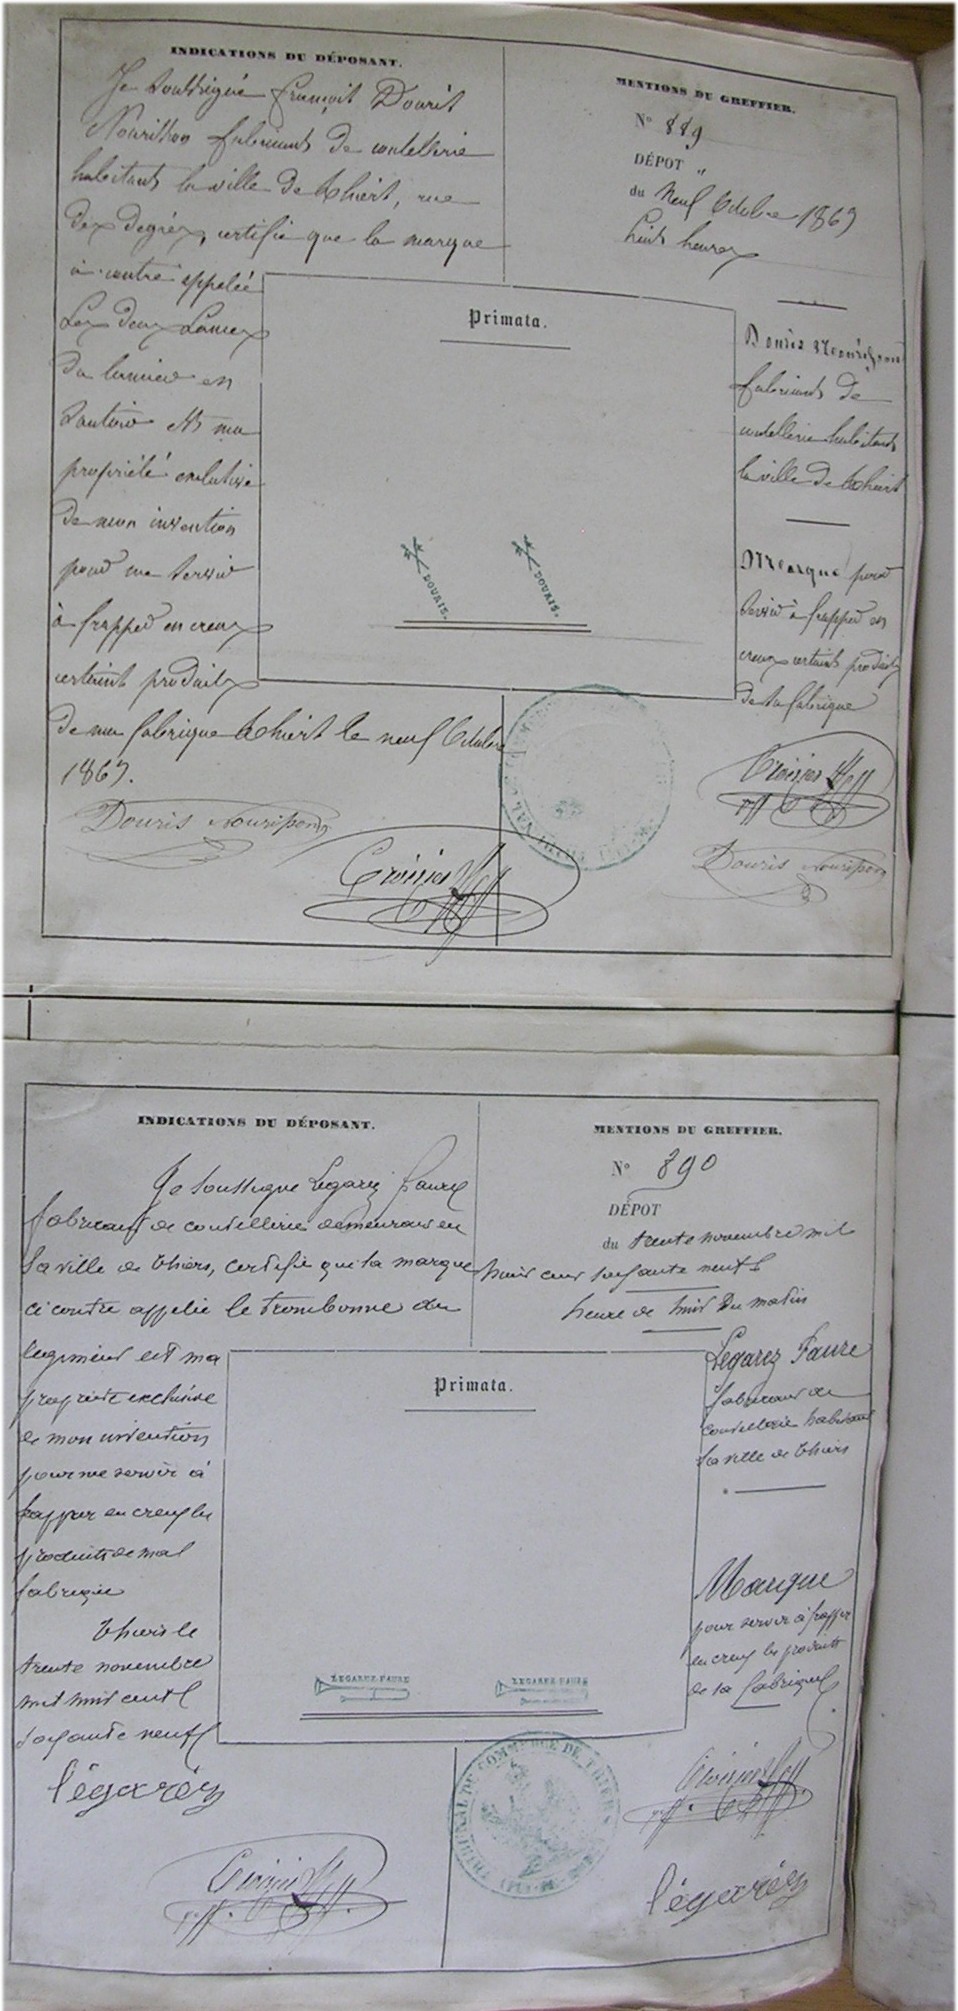 INDICATIONS DU DÉPOSANT.
Je soussigné françois Douris
Nourisson fabricant de coutellerie
habitant la ville de thiers, rue
des degrés, certifie que la marque
ci-contre appelée
Les deux Lances
de lancier en
Sautoir est ma
propriété exclusive
de mon invention
pour me servir
à frapper en creux
certains produits
de ma fabrique thiers le neuf Octobre
1869.
Douris Nourisson
MENTIONS DU GREFFIER.
N° 889
DÉPOT
du Neuf Octobre 1869
huit heures
Primata.
DOURIS. DOURIS.
Douris Nourisson
fabricant de
coutellerie habitant
la ville de thiers
Marque pour
servir à frapper en
creux certains produits
de sa fabrique
Douris Nourisson
INDICATIONS DU DÉPOSANT.
Je soussigné Legarez Faure
fabricant de coutellerie demeurant en
la ville de thiers, certifie que la marque
ci contre appelée le trombonne du
regiment est ma
propriété exclusive
de mon invention
pour me servir à
frapper en creux les
produits de ma
fabrique
thiers le
trente novembre
mil huit cent
soixante neuf
légaréz
MENTIONS DU GREFFIER.
N° 890
DÉPOT
du trente novembre mil
huit cent soixante neuf
heure de huit du matin
Primata.
LEGAREZ-FAURE LEGAREZ-FAURE
Legarez Faure
fabricant de
coutellerie habitant
la ville de thiers
Marque
pour servir à frapper
en creux les produits
de sa fabrique
TRIBUNAL DE COMMERCE DE THIERS
légaréz